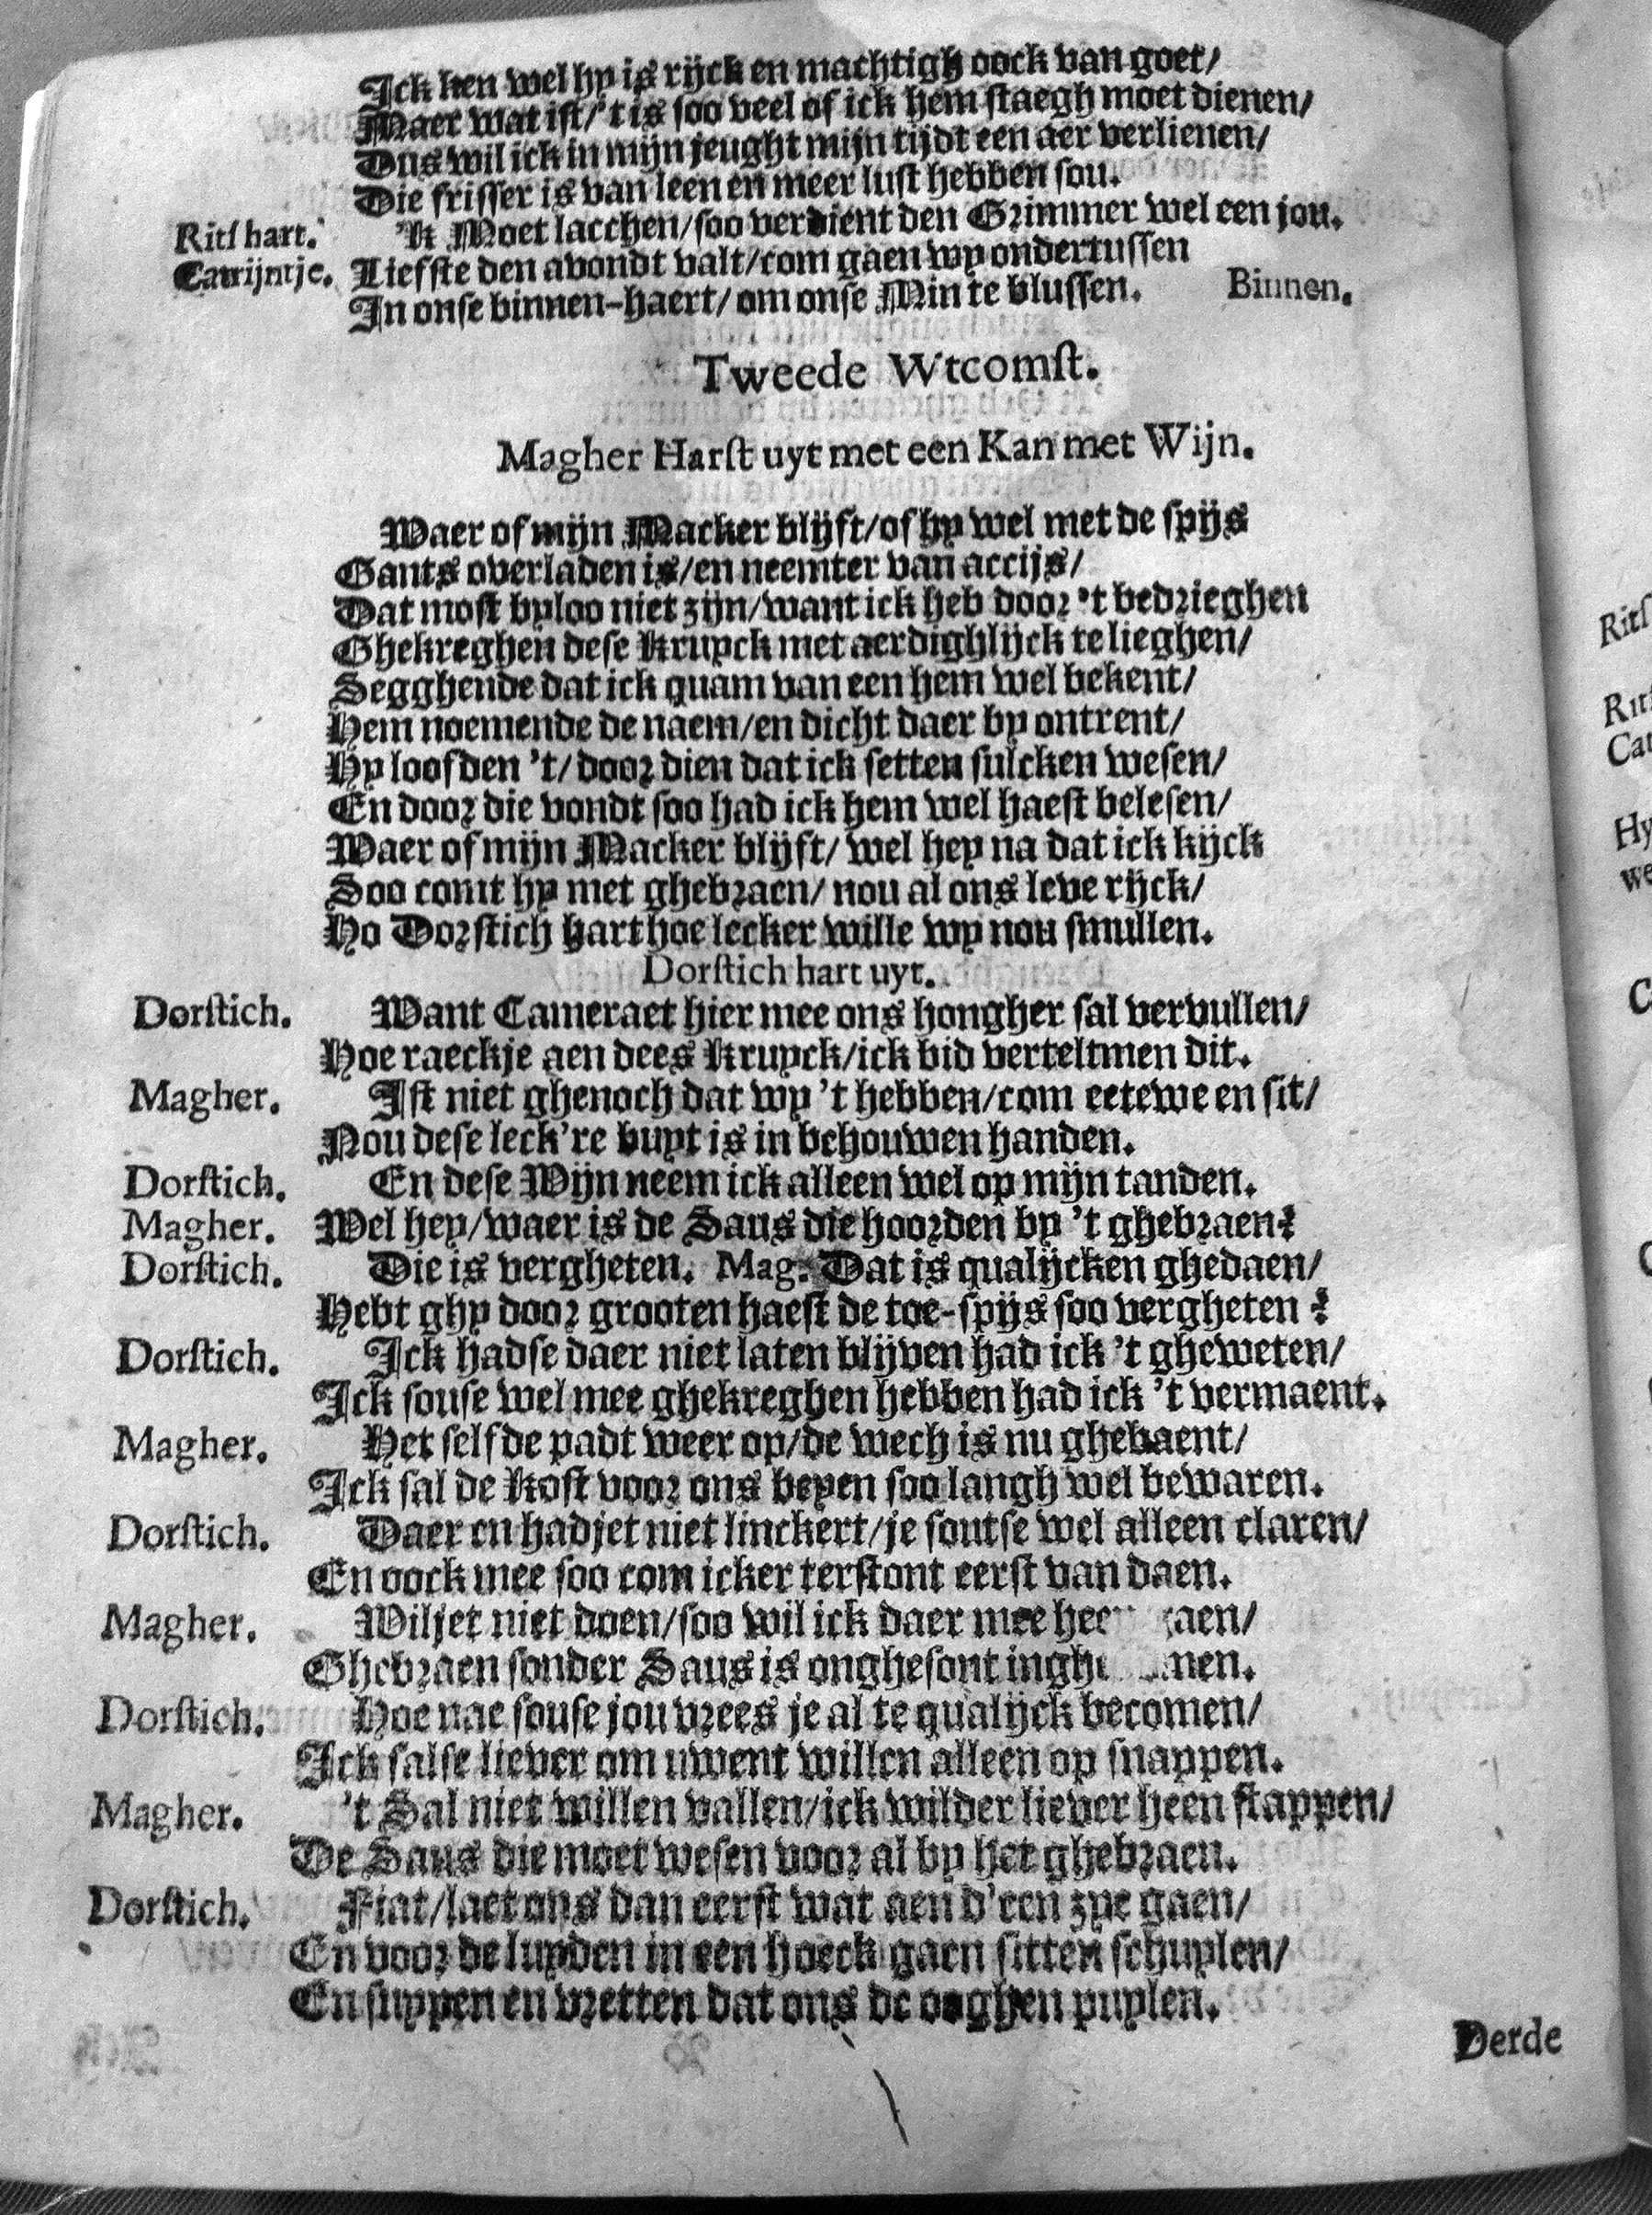 Ick ken wel hy is rijck en machtigh oock van goet/
Maer wat ist/ 't is soo veel of ick hem staegh moet dienen/
Dus wil ick in mijn jeught mijn tijdt een aer verlienen/
Die frisser is van leen en meer lust hebben sou.
Ritshart. 'k Moet lacchen/soo verdient den Grimmer wel een jou.
Catrijntje. Liefste den avondt valt/com gaen wy ondertussen
In onse binnen-haert/ om onse Min te blussen. Binnen.
Tweede Wtcomst.
Magher Harst uyt met een Kan met Wijn.
Waer of mijn Macker blijft/of hy wel met de spijs
Gants overladen is/en neemter van accijs/
Dat most byloo niet zijn/want ick heb door 't bedrieghen
Ghekreghen dese Kruyck met aerdighlijck te lieghen/
Segghende dat ick quam van een hem wel bekent/
Hem noemende de naem/en dicht daer by ontrent/
Hy loofden 't/ door dien dat ick setten sulcken wesen/
En door die vondt soo had ick hem wel haest belesen/
Waer of mijn Macker blijft/ wel hey na dat ick kijck
Soo comt hy met ghebraen/ nou al ons leve rijck/
Ho Dorstich hart hoe lecker wille wy nou smullen.
Dorstich hart uyt.
Dorstich. Want Cameraet hier mee ons hongher sal vervullen/
Hoe raeckje aen dees Kruyck/ick bid verteltmen dit.
Magher. Ist niet ghenoch dat wy 't hebben/com eetewe en sit/
Nou dese leck're buyt is in behouwen handen.
Dorstich. En dese Wijn neem ick alleen wel op mijn tanden.
Magher. Wel hey/waer is de Saus die hoorden by 't ghebraen?
Dorstich. Die is vergheten. Mag. Dat is qualijcken ghedaen/
Hebt ghy door grooten haest de toe-spijs soo vergheten?
Dorstich. Ick hadse daer niet laten blijven had ick 't gheweten/
Ick souse wel mee ghekreghen hebben had ick 't vermaent.
Magher. Het selfde padt weer op/de wech is nu ghebaent/
Ick sal de Kost voor ons beyen soo langh wel bewaren.
Dorstich. Daer en hadjet niet linckert/je soutse wel alleen claren/
En oock mee soo com icker terstont eerst van daen.
Magher. Wiljet niet doen/soo wil ick daer mee
Ghebraen sonder Saus is onghesont
Dorstich. Hoe nae souse jou vrees je al te qualijck becomen/
Ick salse liever om uwent willen alleen op snappen.
Magher. 't Sal niet willen vallen/ick wilder liever heen stappen/
De Saus die moet wesen voor al by het ghebraen.
Dorstich. Fiat/laet ons dan eerst wat aen d'een zye gaen/
En voor de luyden in een hoeck gaen sitten schuylen/
En suypen en vretten dat ons de ooghen puylen.
Derde